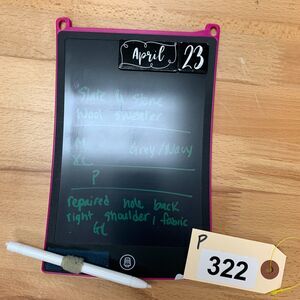 April 23
Slate & Stone
Wool sweater
M Grey/Navy
XC
P
repaired hole back
right shoulder, fabric
GL
P
322